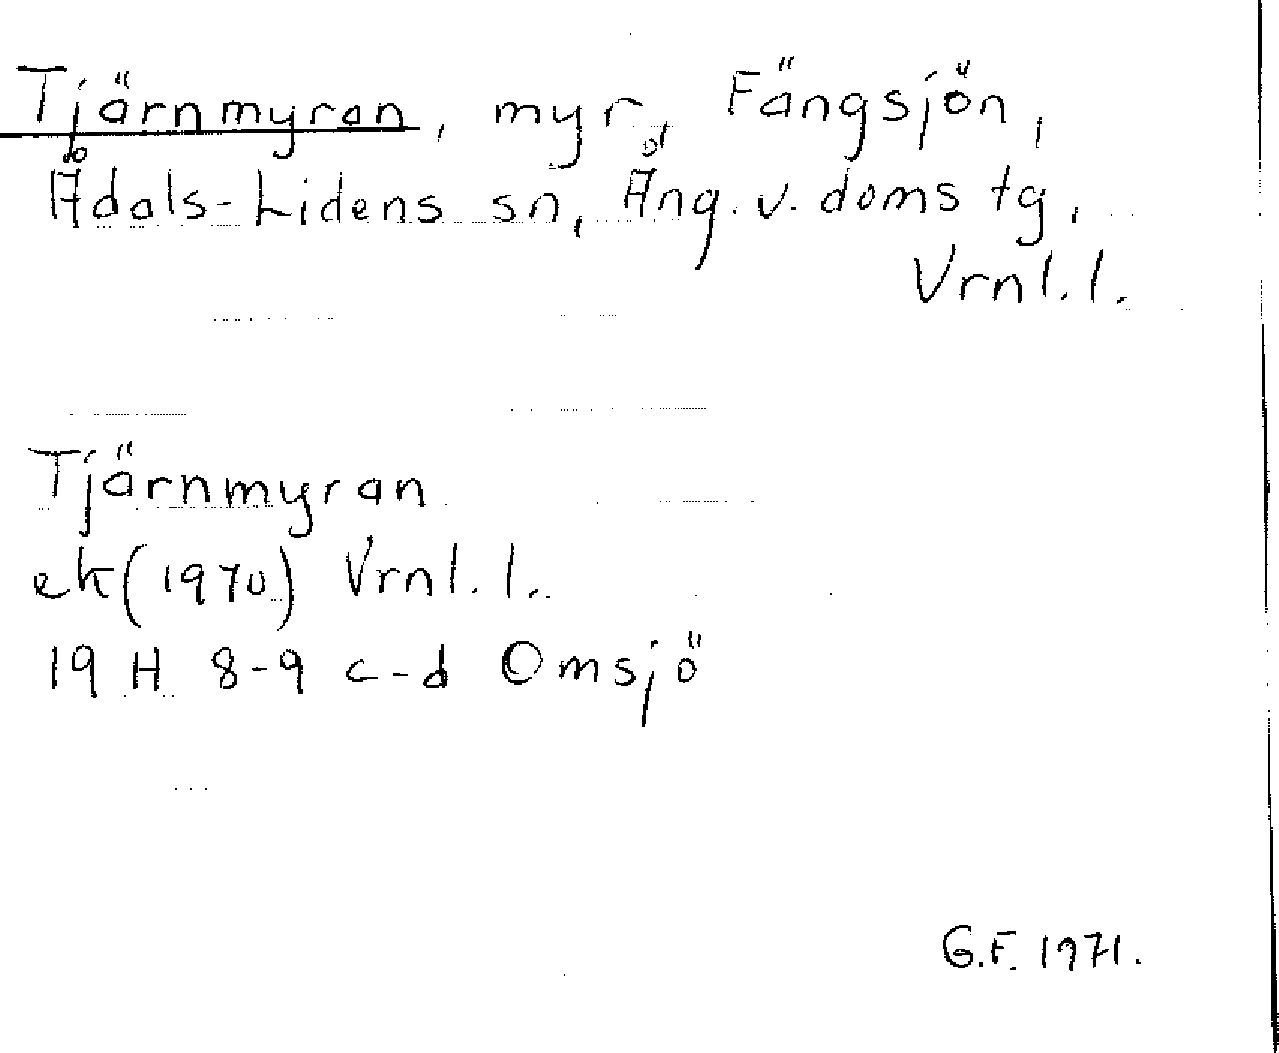 Tjärnmyran, myr, Fängsjön,
Ådals-Lidens sn, Ång. v. doms tg,
Vrnl. l.
Tjärnmyran
ek (1970) Vrnl. l.
19 H 8-9 c-d Omsjö
G.F. 1971.